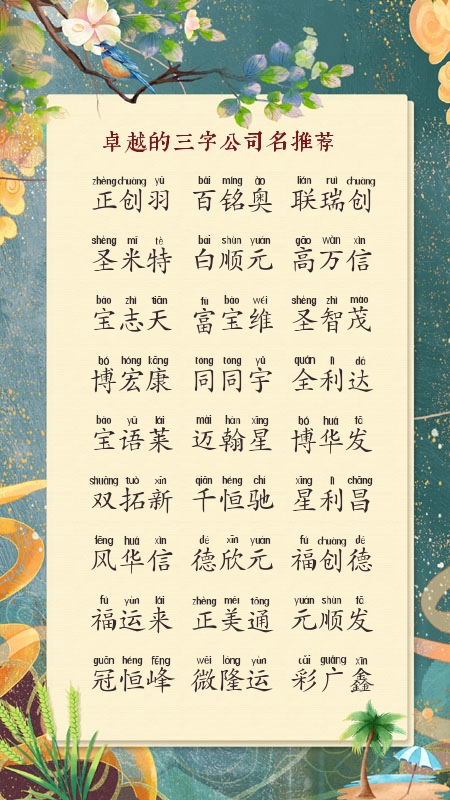 卓越的三字公司名推荐
zhèng chuàng yǔ bǎi míng ào lián ruì chuàng
正创羽 百铭奥 联瑞创
shèng mǐ tè bái shùn yuán gāo wàn xìn
圣米特 白顺元 高万信
bǎo zhì tiān fù bǎo wéi shèng zhì mào
宝志天 富宝维 圣智茂
bó hóng kāng tóng tóng yǔ quán lì dá
博宏康 同同宇 全利达
bǎo yǔ lái mài hàn xīng bó huá fā
宝语莱 迈翰星 博华发
shuāng tuò xīn qiān héng chí xīng lì chāng
双拓新 千恒驰 星利昌
fēng huá xìn dé xīn yuán fú chuàng dé
风华信 德欣元 福创德
fú yùn lái zhèng měi tōng yuán shùn fā
福运来 正美通 元顺发
guān héng fēng wēi lóng yùn cǎi guǎng xīn
冠恒峰 微隆运 彩广鑫